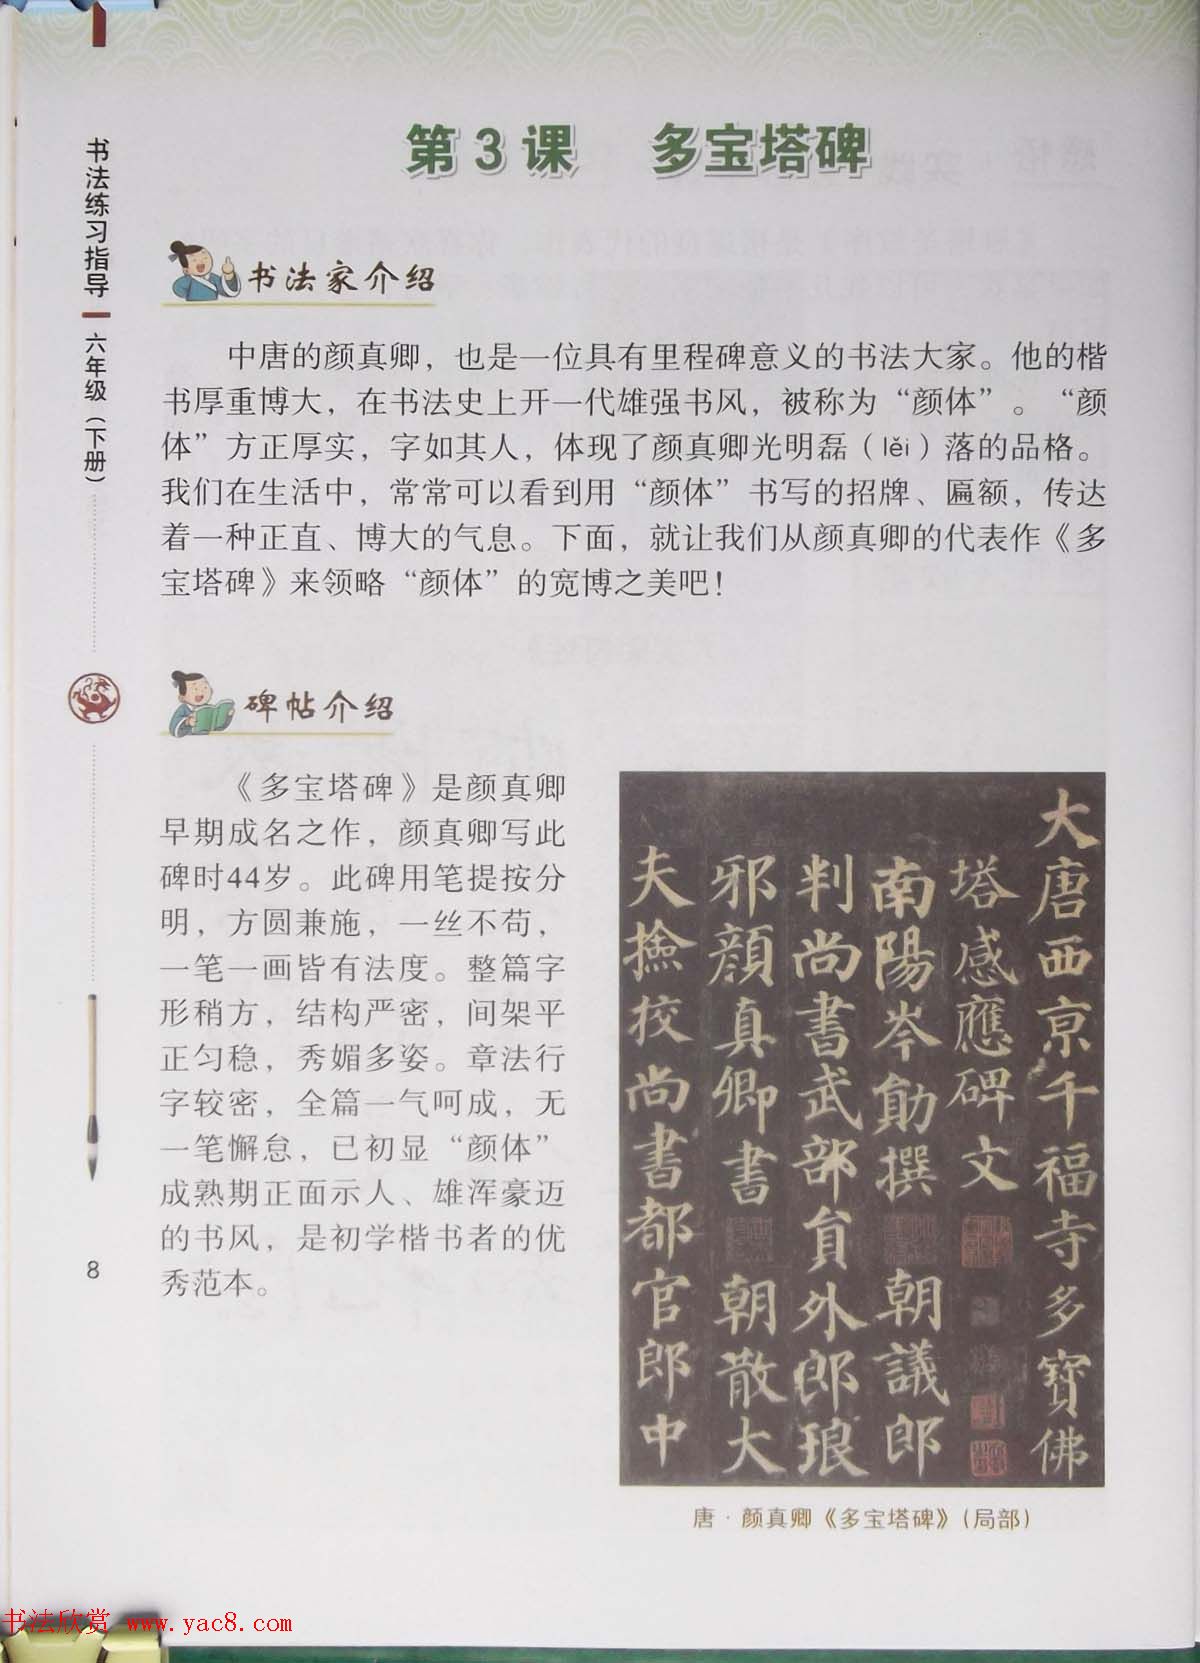 第3课 多宝塔碑
书法练习指导
六年级（下册）
书法家介绍
中唐的颜真卿，也是一位具有里程碑意义的书法大家。他的楷
书厚重博大，在书法史上开一代雄强书风，被称为“颜体”。“颜
体”方正厚实，字如其人，体现了颜真卿光明磊（lěi）落的品格。
我们在生活中，常常可以看到用“颜体”书写的招牌、匾额，传达
着一种正直、博大的气息。下面，就让我们从颜真卿的代表作《多
宝塔碑》来领略“颜体”的宽博之美吧！
碑帖介绍
《多宝塔碑》是颜真卿
早期成名之作，颜真卿写此
碑时44岁。此碑用笔提按分
明，方圆兼施，一丝不苟，
一笔一画皆有法度。整篇字
形稍方，结构严密，间架平
正匀稳，秀媚多姿。章法行
字较密，全篇一气呵成，无
一笔懈怠，已初显“颜体”
成熟期正面示人、雄浑豪迈
的书风，是初学楷书者的优
秀范本。
大唐西京千福寺多寶佛
塔感應碑文
南陽岑勛撰 朝議郎
判尚書武部員外郎琅
邪顏真卿書 朝散大
夫撿挍尚書都官郎中
唐·颜真卿《多宝塔碑》（局部）
8
书法欣赏 www.yac8.com